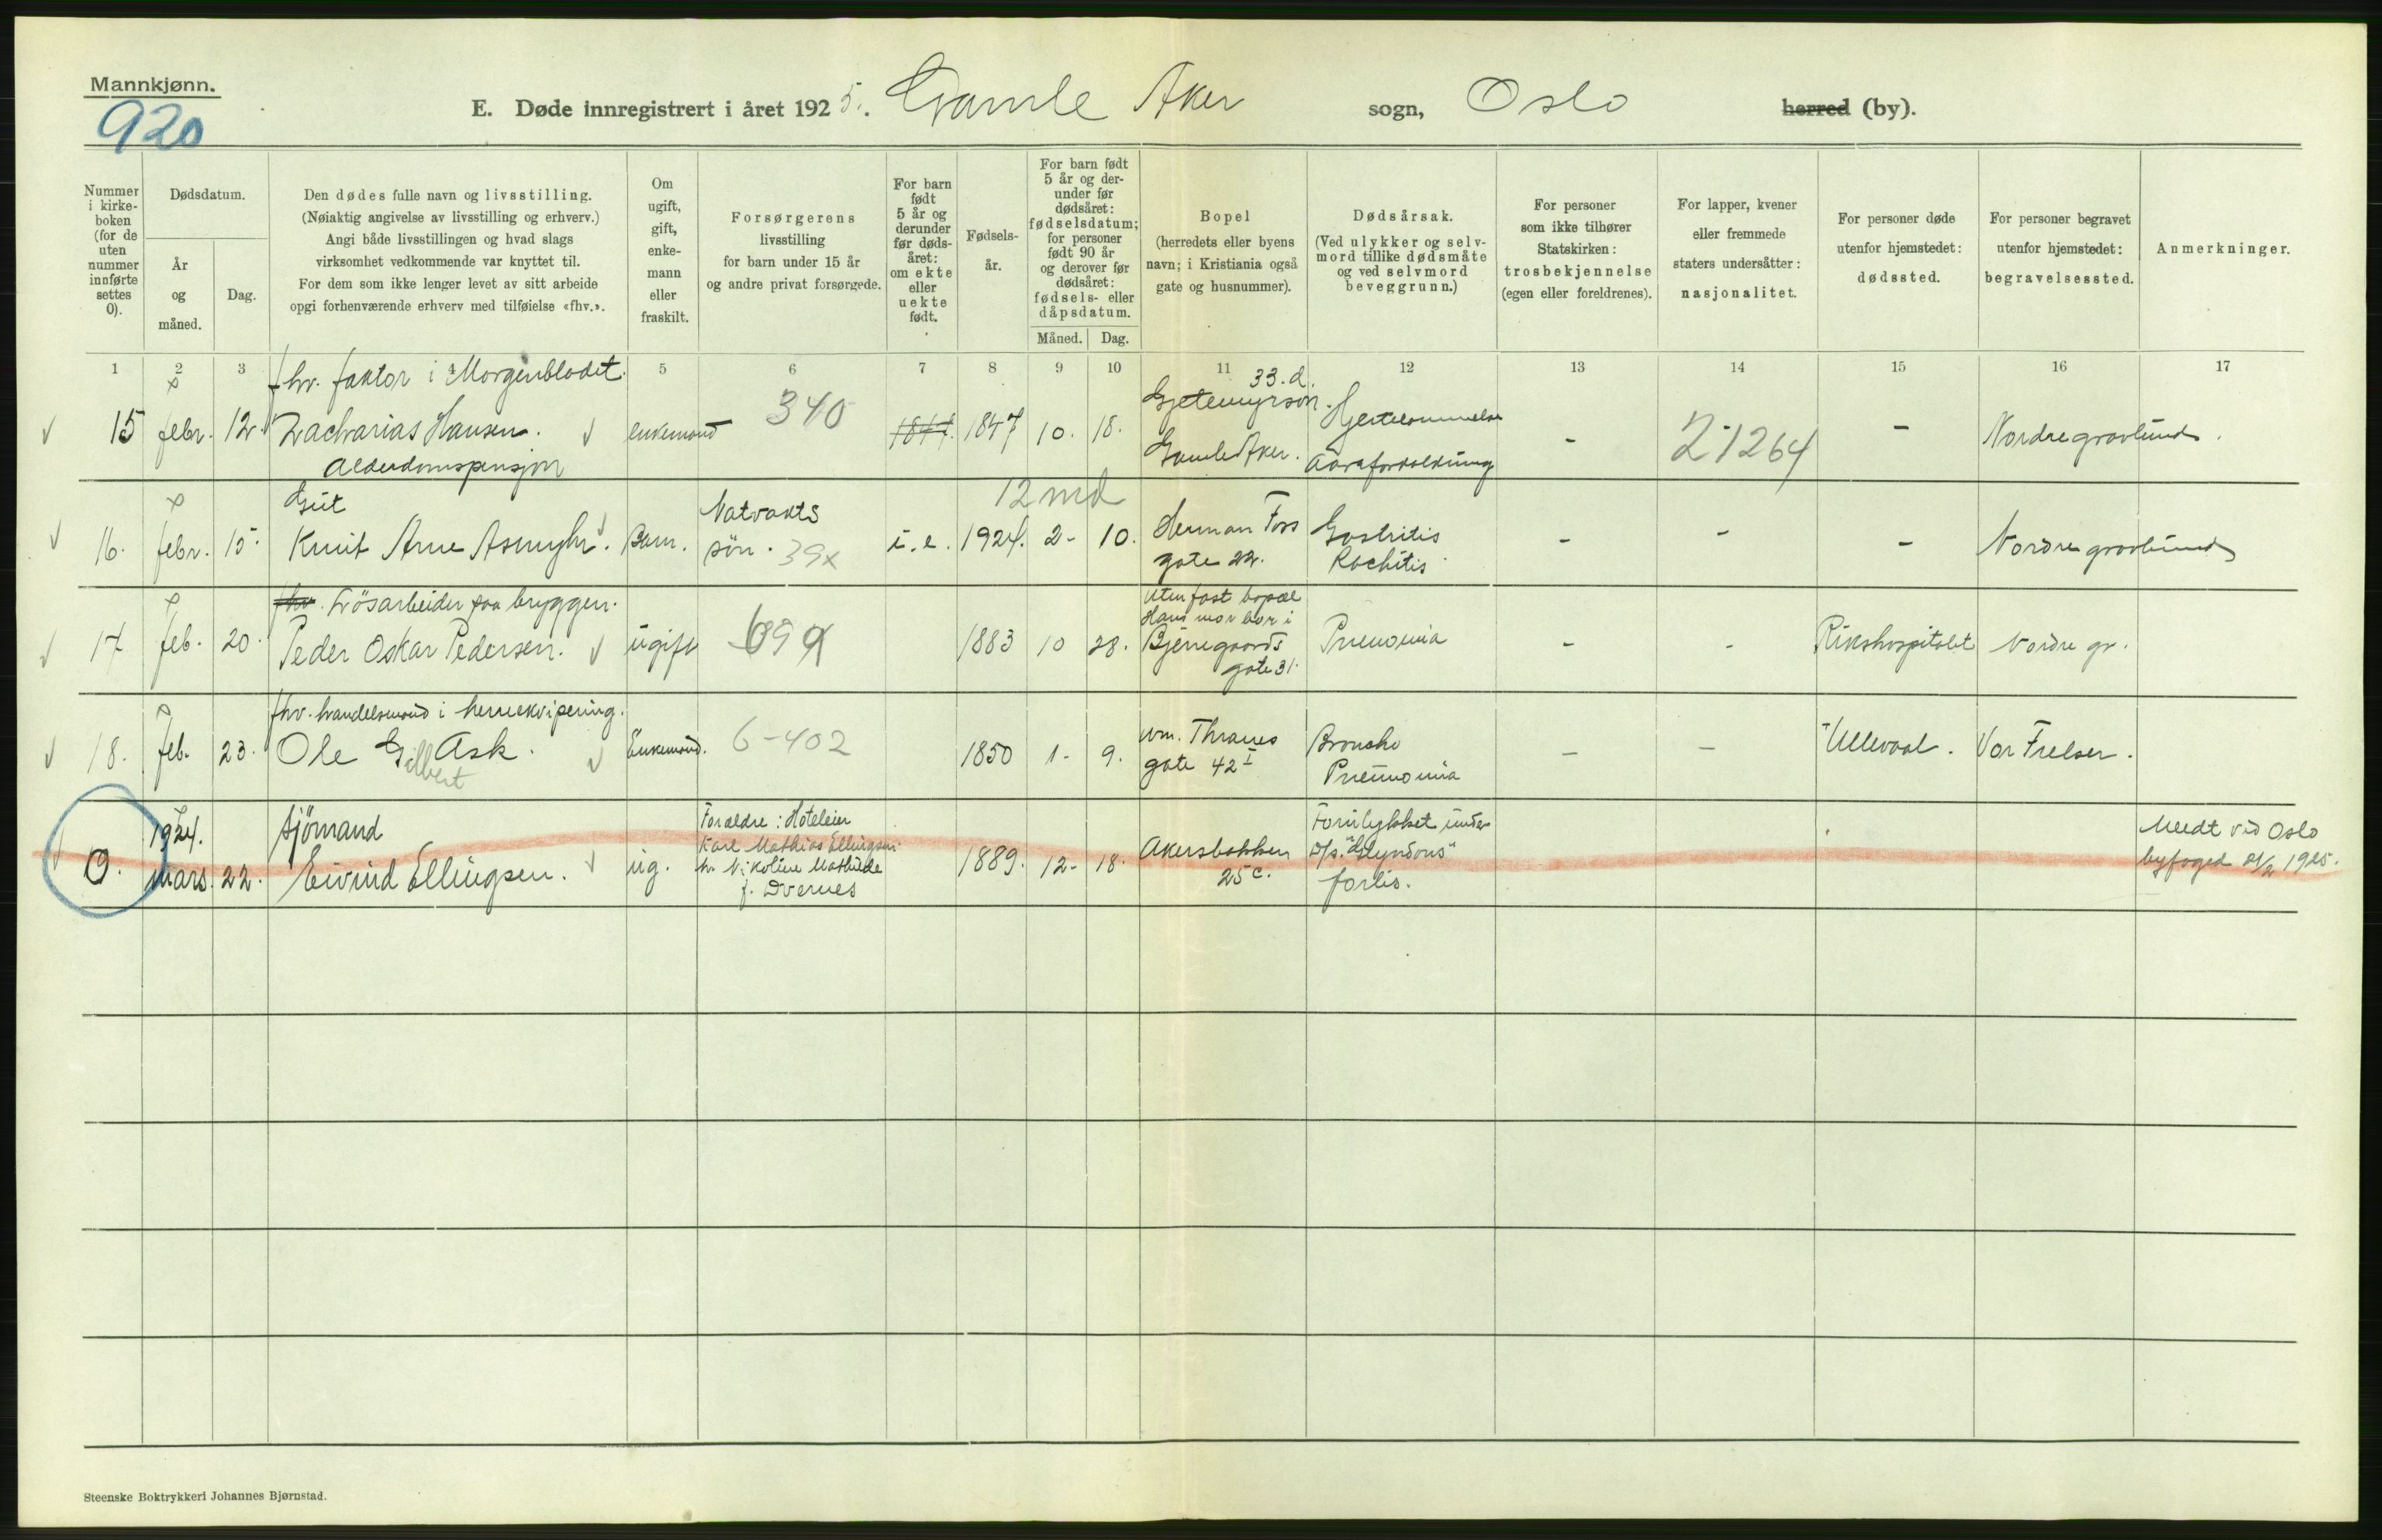 Mannkjønn.
920
E. Døde innregistrert i året 1925. Gamle Aker sogn, Oslo herred (by).
Nummer i kirke- boken (for de uten nummer innførte settes 0).
Dødsdatum.
År og måned.
Dag.
Den dødes fulle navn og livsstilling.
(Nøiaktig angivelse av livsstilling og erhverv.)
Angi både livsstillingen og hvad slags
virksomhet vedkommende var knyttet til.
For dem som ikke lenger levet av sitt arbeide
opgi forhenværende erhverv med tilføielse «fhv.».
Om ugift, gift, enke- mann eller fraskilt.
Forsørgerens
livsstilling
for barn under 15 år
og andre privat forsørgede.
For barn født 5 år og derunder før døds- året: om ekte eller uekte født.
Fødsels- år.
For barn født 5 år og der- under før dødsåret: fødselsdatum; for personer født 90 år og derover før dødsåret: fødsels- eller dåpsdatum.
Måned.
Dag.
Bopel
(herredets eller byens
navn; i Kristiania også
gate og husnummer).
Dødsårsak.
(Ved ulykker og selv-
mord tillike dødsmåte
og ved selvmord
beveggrunn.)
For personer
som ikke tilhører
Statskirken:
trosbekjennelse
(egen eller foreldrenes).
For lapper, kvener
eller fremmede
staters undersåtter:
nasjonalitet.
For personer døde
utenfor hjemstedet:
dødssted.
For personer begravet
utenfor hjemstedet:
begravelsessted.
Anmerkninger.
1 2 3 4 5 6 7 8 9 10 11 12 13 14 15 16 17
fhv. faktor i Morgenbladet.
15 febr. 12. Zacharias Hansen. enkemand 340 1847 1847 10. 18.
Alderdomspensjon
33.d.
Gjetemyrsvn.
Gamle Aker.
Aareforkalkning
- 2-1264 - Nordre gravlund.
Gut
16. febr. 15. Knut Arne Asmyhr. Barn.
Natvakts
søn. 39x
12 md
i.e. 1924. 2- 10.
Herman Foss
gate 22.
Gastritis
Rachitis
- - - Nordre gravlund
fhv. Løsarbeider paa bryggen.
17 feb. 20. Peder Oskar Pedersen. ugift 699 1883 10 28.
Uten fast bopæl
Hans mor bor i
Bjerregaards
gate 31.
Pneumonia - - Rikshospitalet Nordre gr.
fhv. handelsmand i herreekvipering.
18. feb. 23. Ole Gilbert Ask. Enkemand. 6-402 1850 1- 9.
Wm. Thranes
gate 42 I
Broncho
Pneumonia
- - Ullevaal. Vor Frelser.
0. 1924. mars. 22.
sjömand
Eivind Ellingsen. ug.
Forældre: Hoteleier
Karl Mathias Ellingsen
h. Nikoline Mathilde
f. Dvernes
1889. 12- 18.
Akersbakken
25 c.
Forulykket under
forlis.
Meldt ved Oslo
byfoged 21/2 1925.
Steenske Boktrykkeri Johannes Bjørnstad.